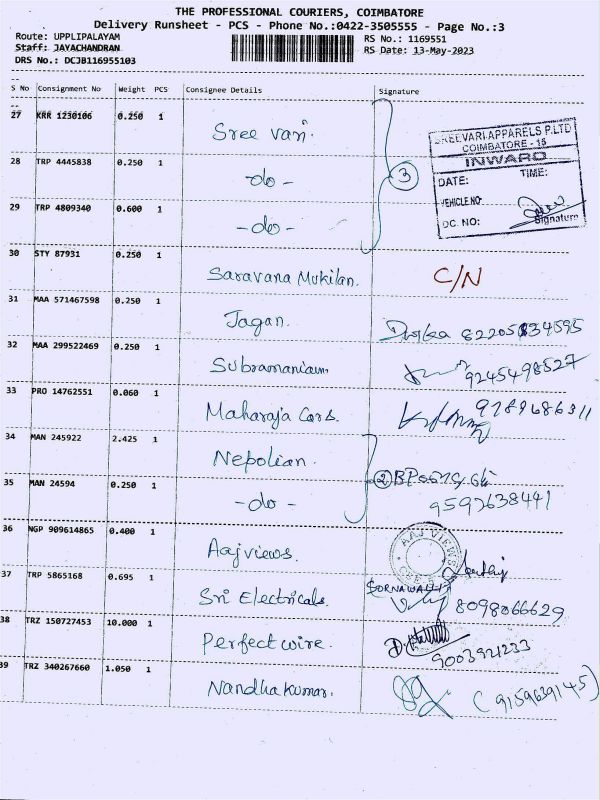 THE PROFESSIONAL COURIERS, COIMBATORE
Delivery Runsheet - PCS - Phone No.:0422-3505555 - Page No.:3
Route: UPPLIPALAYAM
RS No.: 1169551
Staff: JAYACHANDRAN
RS Date: 13-May-2023
DRS No.: DCJB116955103
S No Consignment No Weight PCS Consignee Details Signature
27 KRR 1230106 0.250 1 Sree vari.
28 TRP 4445838 0.250 1 -do-
29 TRP 4809340 0.600 1 -do-
3
SREEVARI APPARELS P.LTD
COIMBATORE - 15
INWARD
DATE: TIME:
VEHICLE NO
DC. NO: Signature
30 STY 87931 0.250 1 Saravana Mukilan. C/N
31 MAA 571467598 0.250 1 Jagan. 82205134595
32 MAA 299522469 0.250 1 Subramaniam. 9245498527
33 PRO 14762551 0.060 1 Maharaja Cars. 9789686311
34 MAN 245922 2.425 1 Nepolian.
35 MAN 24594 0.250 1 -do- 2 9592638441
36 NGP 909614865 0.400 1 Aajviews. AAJ VIEWS
37 TRP 5865168 0.695 1 Sri Electricals. 8098066629
38 TRZ 150727453 10.000 1 Perfect wire. 9003921233
39 TRZ 340267660 1.050 1 Nandhakumar. (9159639145)